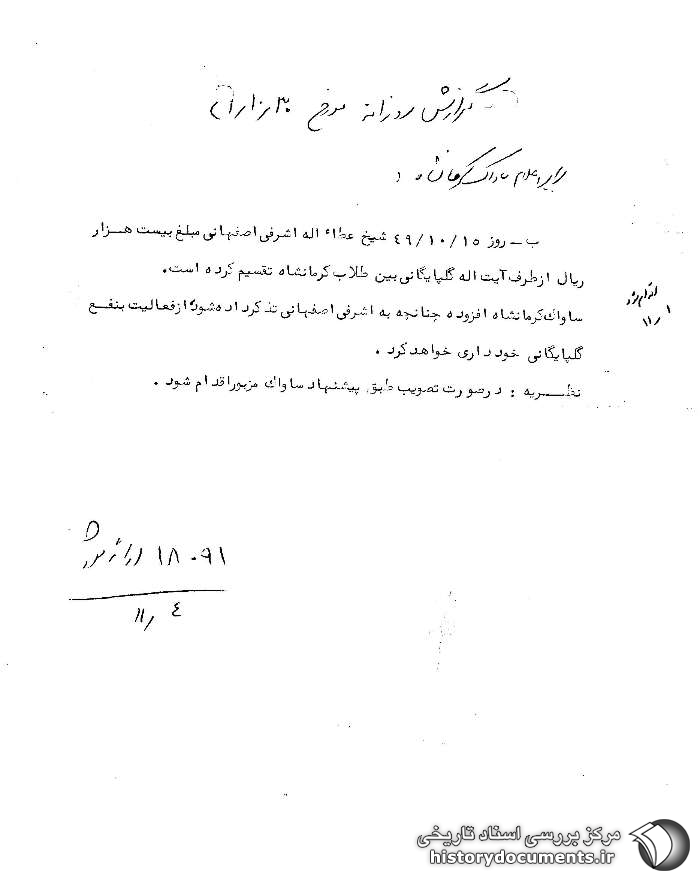 گزارش روزانه مورخ
برابر اعلام ساواک کرمانشاه :
ب - روز ۴۹/۱۰/۱۵ شیخ عطاء اله اشرفی اصفهانی مبلغ بیست هزار
ریال ازطرف آیت اله گلپایگانی بین طلاب کرمانشاه تقسیم کرده است.
ساواک کرمانشاه افزوده چنانچه به اشرفی اصفهانی تذکر داده شود ازفعالیت بنفع
گلپایگانی خودداری خواهد کرد .
نظریه : درصورت تصویب طبق پیشنهاد ساواک مزبور اقدام شود .
۱۸۰۹۱
۱۱/۴
مرکز بررسی اسناد تاریخی
historydocuments.ir